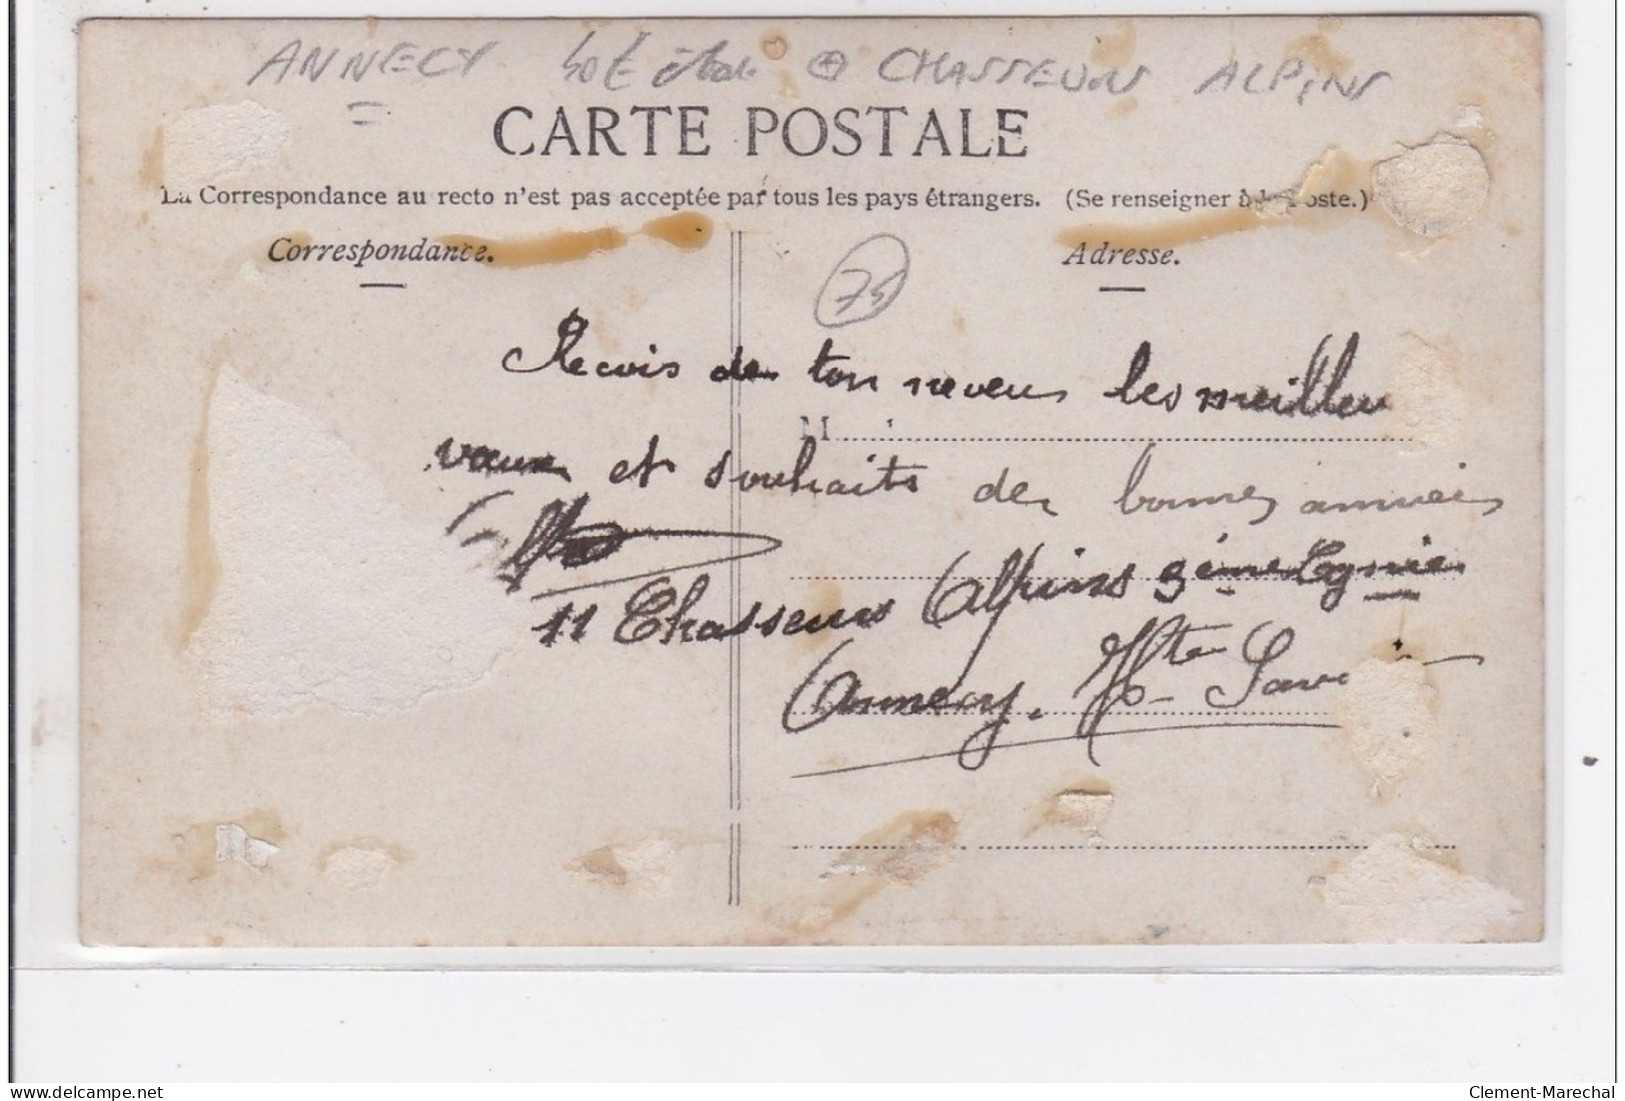 ANNECY CHASSEURS ALPINS
CARTE POSTALE
La Correspondance au recto n'est pas acceptée par tous les pays étrangers. (Se renseigner à la Poste.)
Correspondance.
Adresse.
75
Recois de ton neveu les meilleu
M
vœux et souhaits de bonnes années
11 Chasseurs Alpins 3ème Cgnie
Annecy. Hte Savoie
delcampe.net
Clement-Marechal